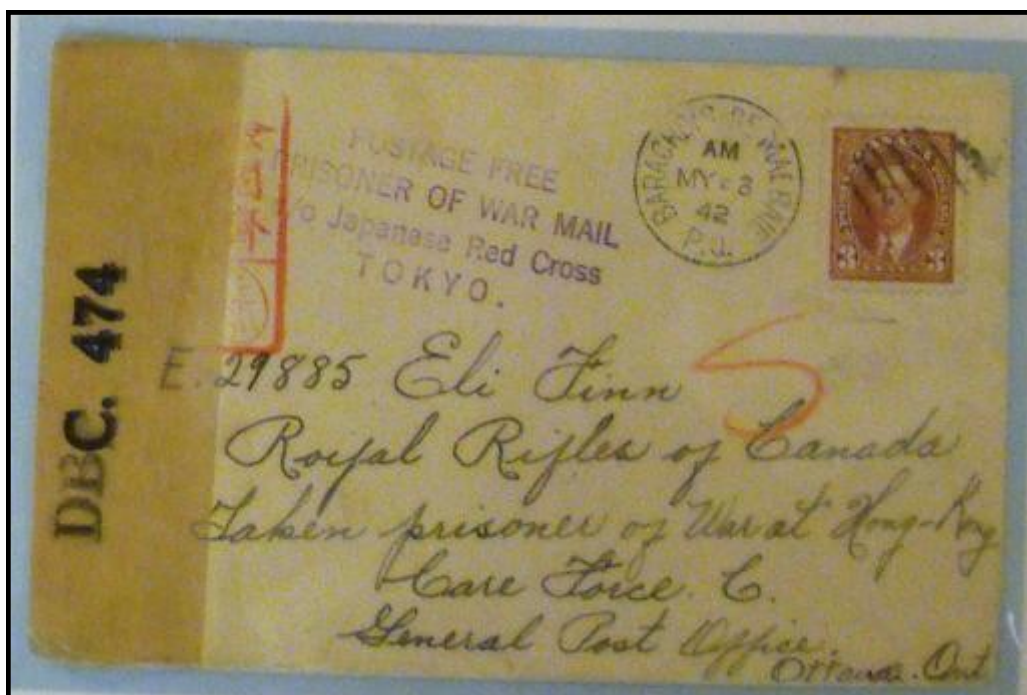 POSTAGE FREE
PRISONER OF WAR MAIL
c/o Japanese Red Cross
TOKYO.
AM
MY 3
42
3 3
DBC. 474
E. 29885 Eli Finn
Royal Rifles of Canada
Taken prisoner of War at Hong-Kong
Care Force. C.
General Post Office.
Ottawa. Ont
5